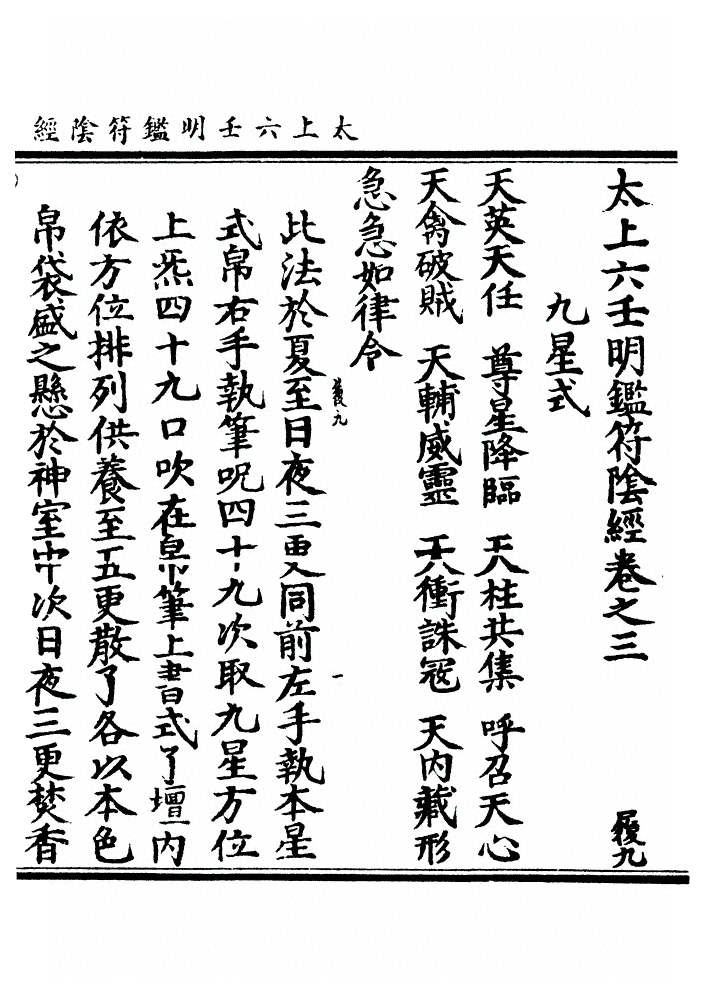 太上六壬明鑑符陰經
太上六壬明鑑符陰經卷之三 履九
九星式
天英天任 尊星降臨 天柱共集 呼召天心
天禽破賊 天輔威靈 天衝誅寇 天內藏形
急急如律令
履九 一
此法於夏至日夜三更同前左手執本星
式帛右手執筆呪四十九次取九星方位
上炁四十九口吹在帛筆上書式了壇內
依方位排列供養至五更散了各以本色
帛袋盛之懸於神室中次日夜三更焚香